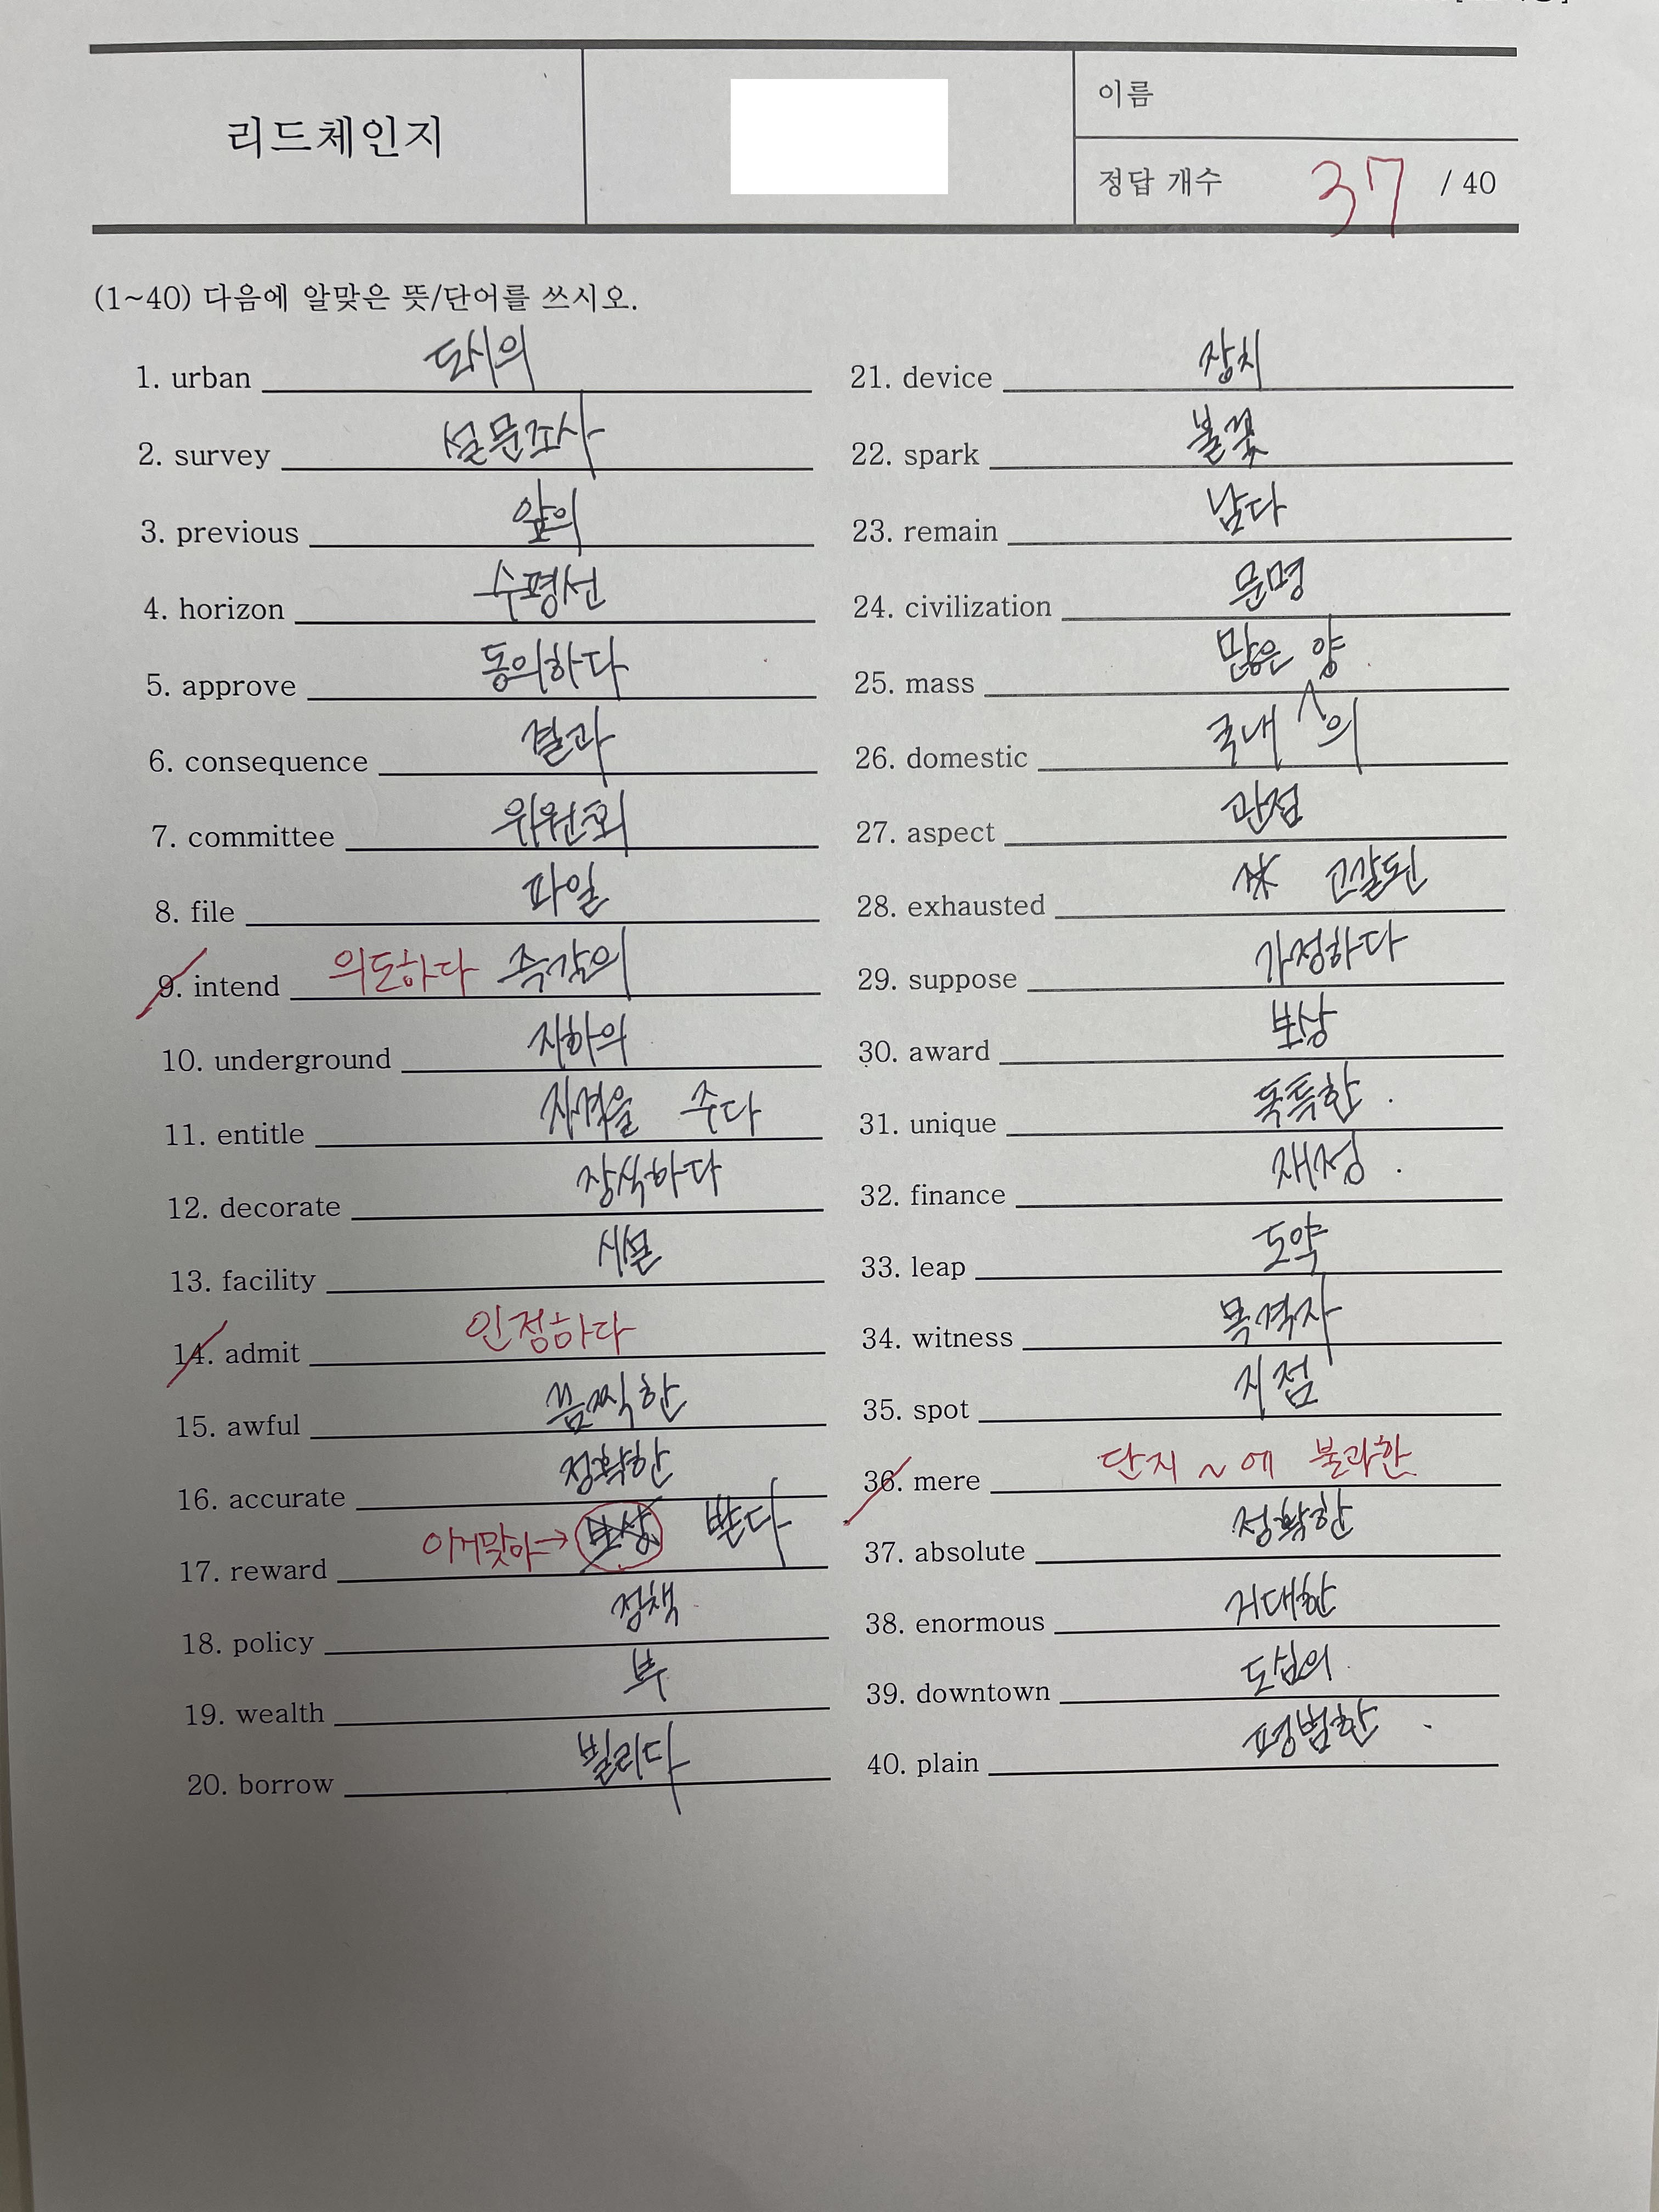 리드체인지
이름
정답 개수 37 / 40
(1~40) 다음에 알맞은 뜻/단어를 쓰시오.
1. urban 도시의
2. survey 설문조사
3. previous 앞의
4. horizon 수평선
5. approve 동의하다
6. consequence 결과
7. committee 위원회
8. file 파일
9. intend 의도하다 즉각의
10. underground 지하의
11. entitle 자격을 주다
12. decorate 장식하다
13. facility 시설
14. admit 인정하다
15. awful 끔찍한
16. accurate 정확한
17. reward 이거맞아→ 보상 받다
18. policy 정책
19. wealth 부
20. borrow 빌리다
21. device 장치
22. spark 불꽃
23. remain 남다
24. civilization 문명
25. mass 많은 양
26. domestic 국내의
27. aspect 관점
28. exhausted 고갈된
29. suppose 가정하다
30. award 보상
31. unique 독특한
32. finance 재정
33. leap 도약
34. witness 목격자
35. spot 지점
36. mere 단지 ~에 불과한
37. absolute 정확한
38. enormous 거대한
39. downtown 도심의
40. plain 평범한